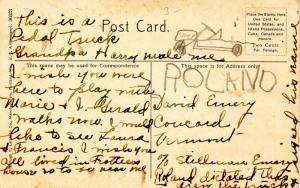 This is a
Pedal Truck
Grandpa Harry made me
Post Card.
Place the Stamp Here
One Cent for
United States
and Island
Possessions,
Cuba, Canada and
Mexico.
Two Cents
For Foreign.
This space may be used for Correspondence
This space is for Address only
ROLAND
I wish you were
here to play with
Marie & I. Gerald
walks now. I would
like to see Laura
Francis I wish you
all lived in
so to see
David Emery
Concord
Vermont
% Stellman Emery
Roland dictated this
drew the truck
signed his name